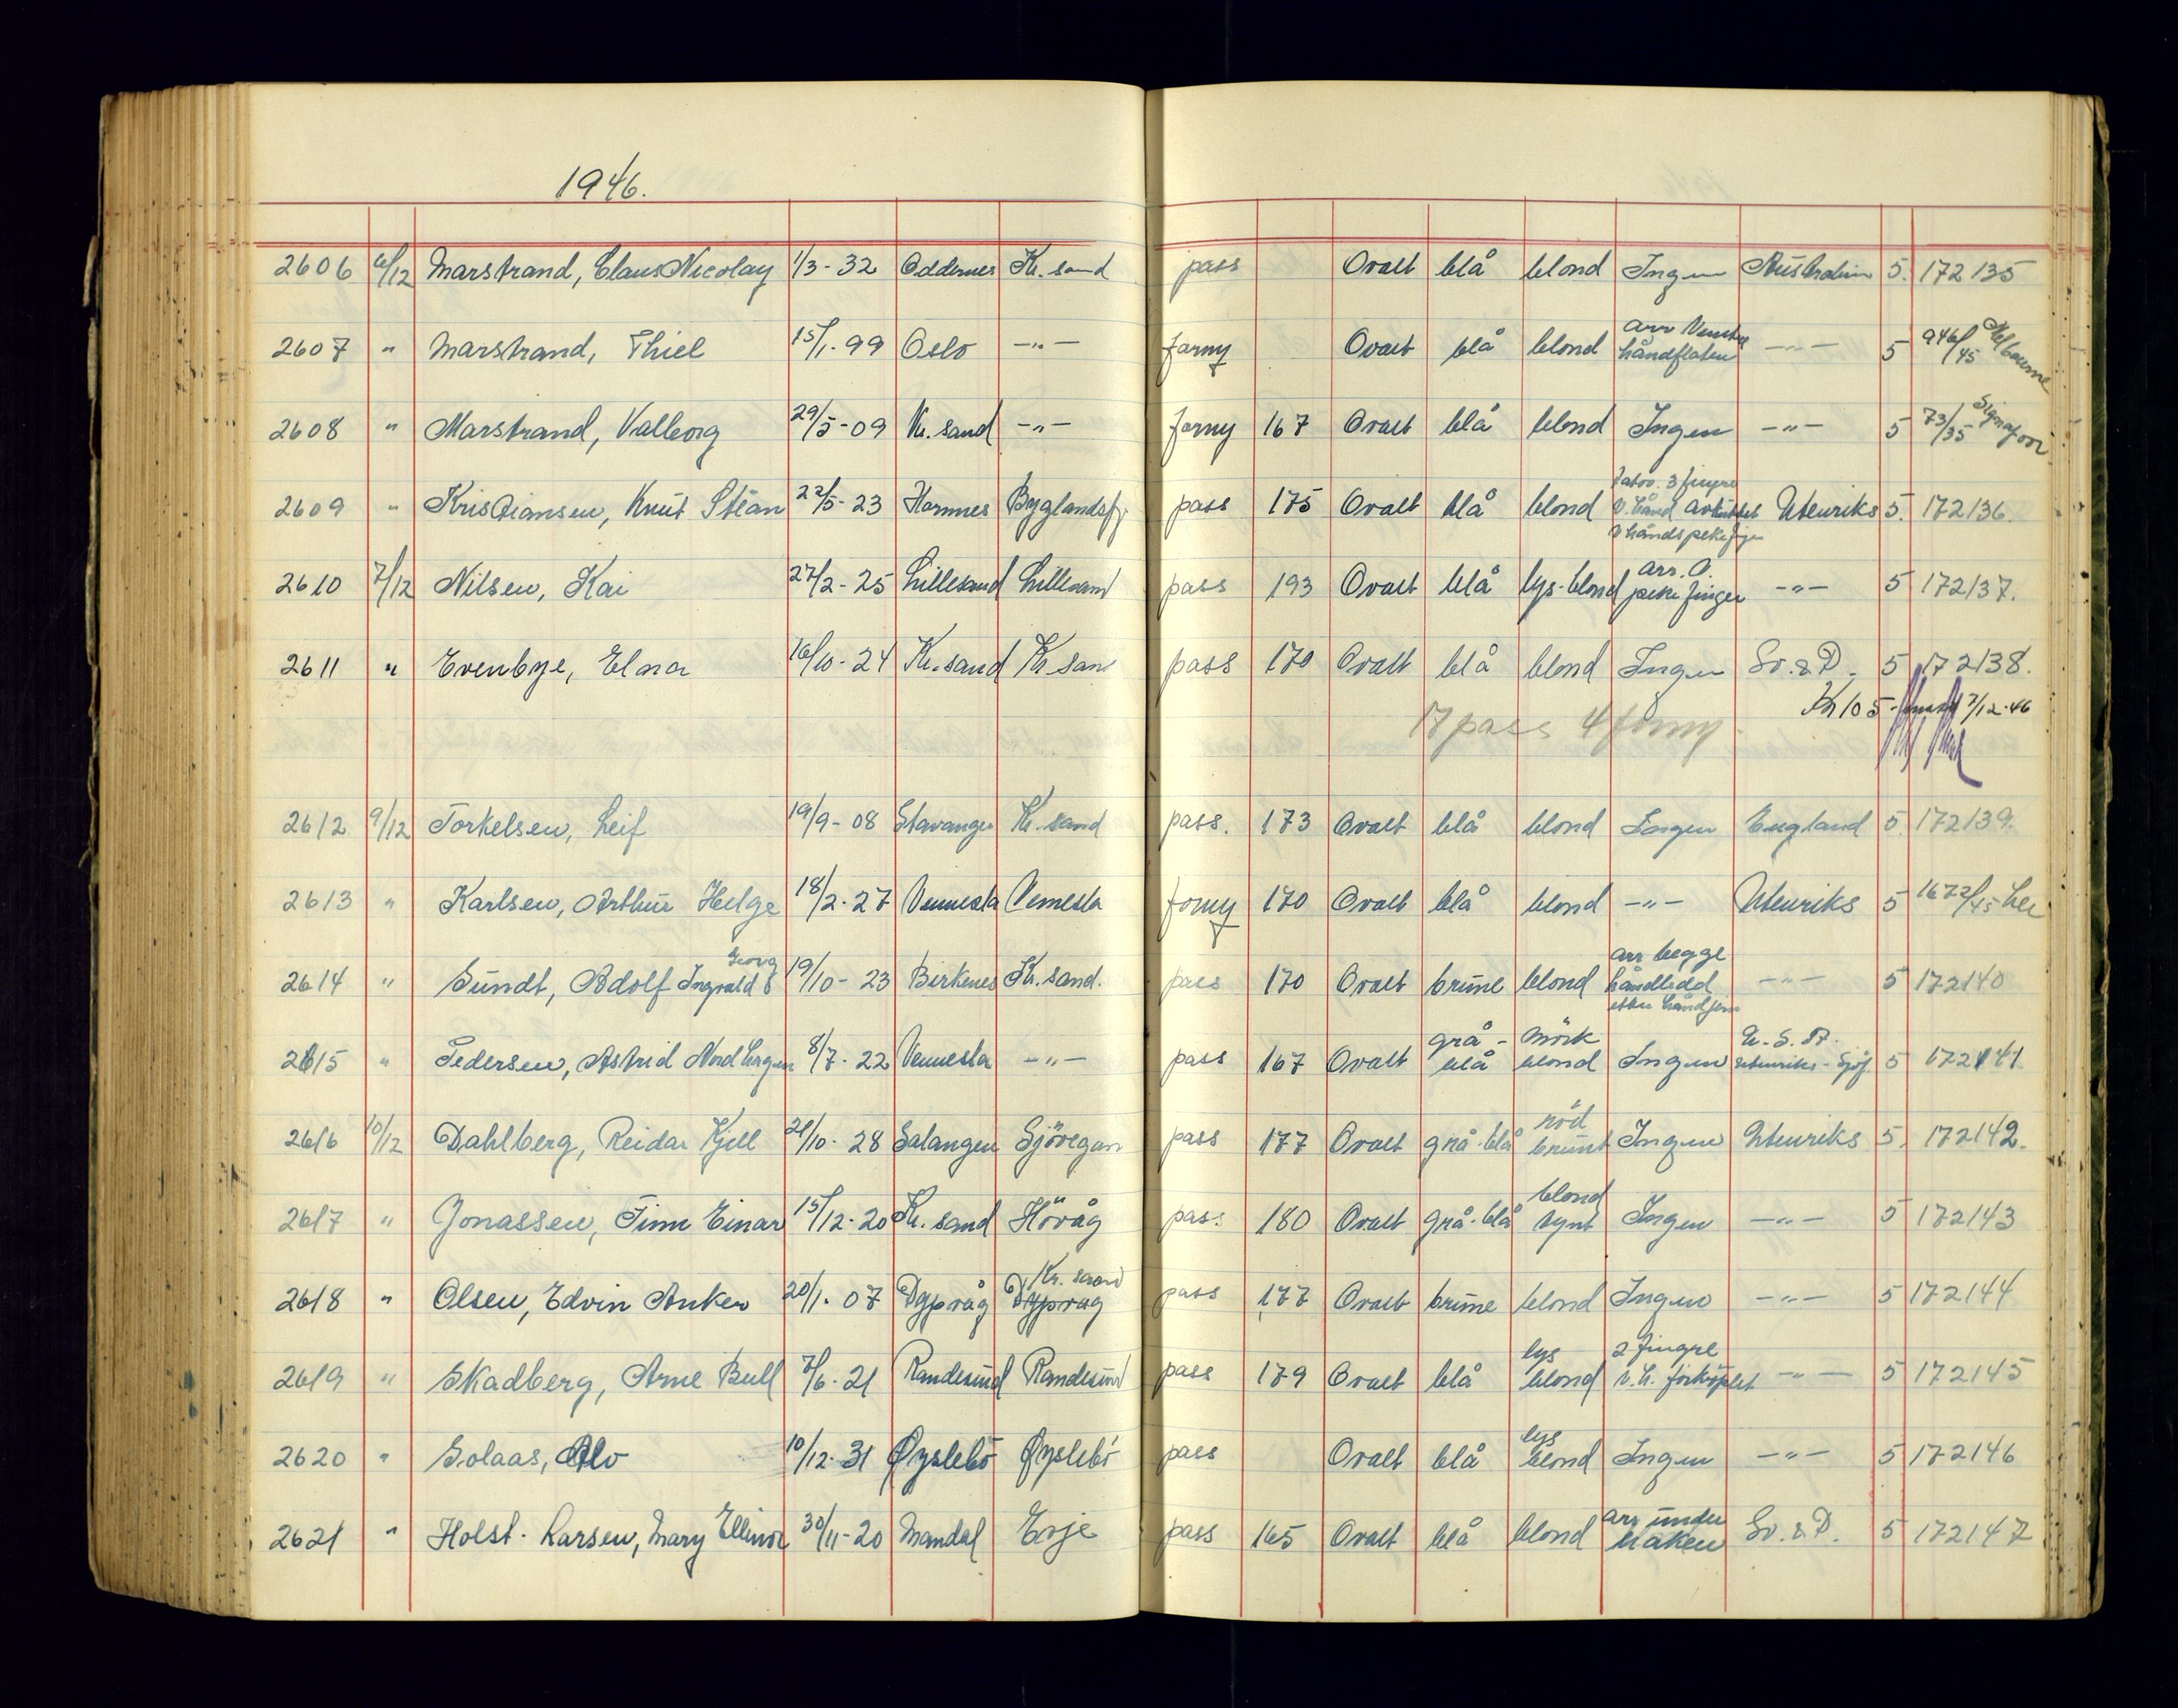 1946.
2606 6/12 Marstrand, Claus Nicolay 1/3-32 Oddernes Kr. sand pass Ovalt blå blond Ingen Australien 5. 172135
2607 " Marstrand, Thiel 15/1-99 Oslo -"- forny Ovalt blå blond arr venstre håndflaten -"- 5 946/45 Melbourne
2608 " Marstrand, Valborg 29/5-09 Kr. sand -"- forny 167 Ovalt blå blond Ingen -"- 5 73/35 Signapoor
2609 " Kristiansen, Knut Stean 22/5-23 Hornnes Byglandsfj. pass 175 Ovalt blå blond tatov. 3 fingre v. hånd avkuttet v håndspekefinger Utenriks 5. 172136.
2610 7/12 Nilsen, Kai 27/2-25 Lillesand Lillesand pass 193 Ovalt blå lys-blond arr. pekefinger -"- 5 172137.
2611 " Evenbye, Elna 16/10-24 Kr. sand Kr sand pass 170 Ovalt blå blond Ingen Sv. & D. 5 172138.
Kr 105 7/12-46
17 pass 4 forny
2612 9/12 Torkelsen, Leif 19/9-08 Stavanger Kr. sand pass. 173 Ovalt blå blond Ingen England 5. 172139.
2613 " Karlsen, Arthur Helge 18/2-27 Vennesla Vennesla forny 170 Ovalt blå blond -"- Utenriks 5 1672/45 her
2614 " Sundt, Adolf Ingvald Georg 19/10-23 Birkenes Kr. sand. pass 170 Ovalt brune blond arr begge håndledd etter håndjern -"- 5 172140
2615 " Pedersen, Astrid Nordhagen 8/7-22 Vennesla -"- pass 167 Ovalt grå-blå mörk blond Ingen U.S.A. utenriks-sjöf. 5 172141
2616 10/12 Dahlberg, Reidar Kjell 21/10-28 Salangen Sjövegan pass 177 Ovalt grå-blå röd brunt Ingen Utenriks 5. 172142.
2617 " Jonassen, Finn Einar 15/12-20 Kr. sand Hövåg pass. 180 Ovalt grå-blå blond tynt Ingen -"- 5 172143
2618 " Olsen, Edvin Anker 20/1-07 Dypvåg Kr. sand Dypvåg pass 177 Ovalt brune blond Ingen -"- 5 172144
2619 " Skadberg, Arne Bull 7/6-21 Randesund Randesund pass 179 Ovalt blå lys blond 2 fingre v.h. forkröplet -"- 5 172145
2620 " Solaas, Alv 10/12-31 Øyslebö Øyslebö pass Ovalt blå lys blond Ingen -"- 5 172146
2621 " Holst-Larsen, Mary Ellinor 30/11-20 Mandal Evje pass 165 Ovalt blå blond arr under haken Sv. & D. 5 172147